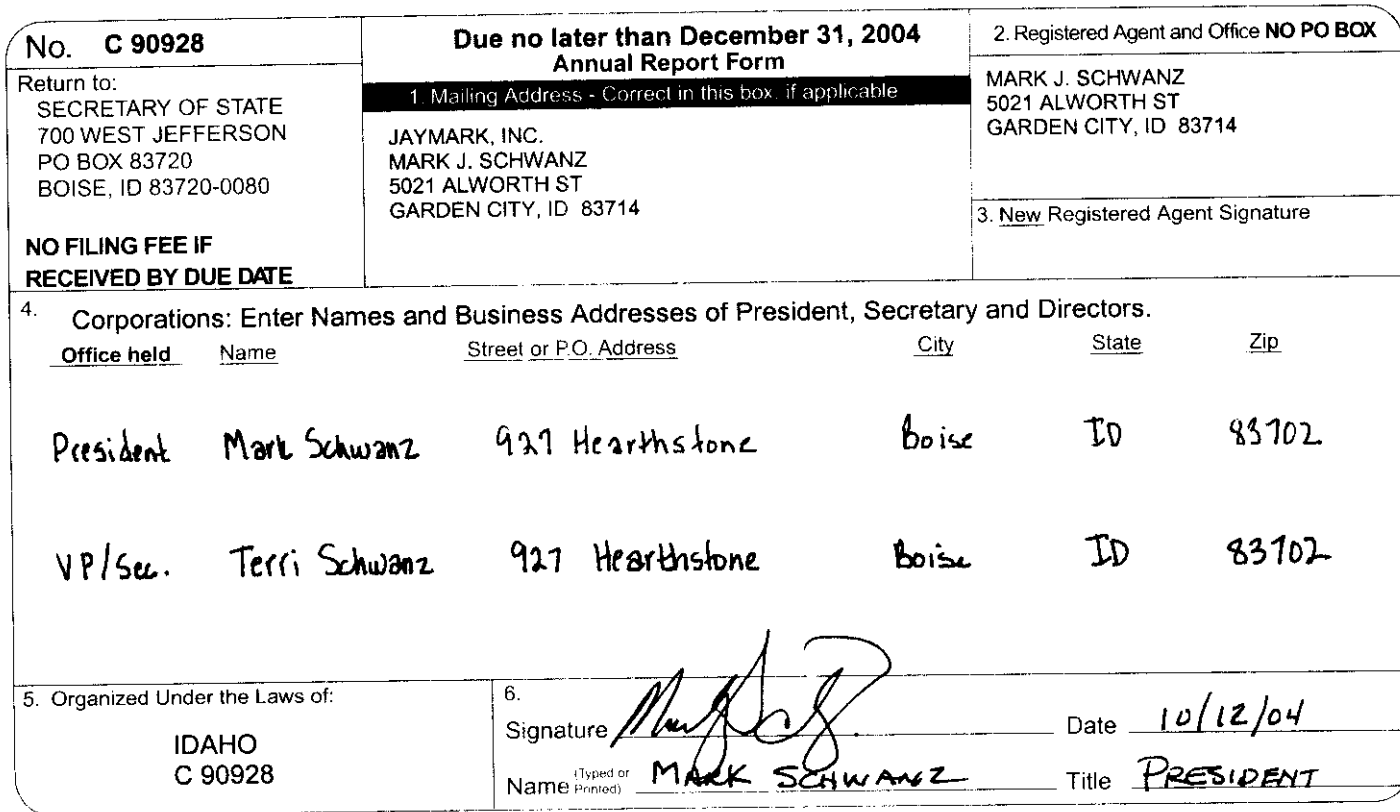 No. C 90928
Return to:
SECRETARY OF STATE
700 WEST JEFFERSON
PO BOX 83720
BOISE, ID 83720-0080
NO FILING FEE IF
RECEIVED BY DUE DATE
Due no later than December 31, 2004
Annual Report Form
1. Mailing Address - Correct in this box, if applicable
JAYMARK, INC.
MARK J. SCHWANZ
5021 ALWORTH ST
GARDEN CITY, ID 83714
2. Registered Agent and Office NO PO BOX
MARK J. SCHWANZ
5021 ALWORTH ST
GARDEN CITY, ID 83714
3. New Registered Agent Signature
4. Corporations: Enter Names and Business Addresses of President, Secretary and Directors.
Office held Name Street or P.O. Address City State Zip
President Mark Schwanz 927 Hearthstone Boise ID 83702
VP/Sec. Terri Schwanz 927 Hearthstone Boise ID 83702
5. Organized Under the Laws of:
IDAHO
C 90928
6.
Signature Date 10/12/04
Name (Typed or Printed) MARK SCHWANZ Title PRESIDENT